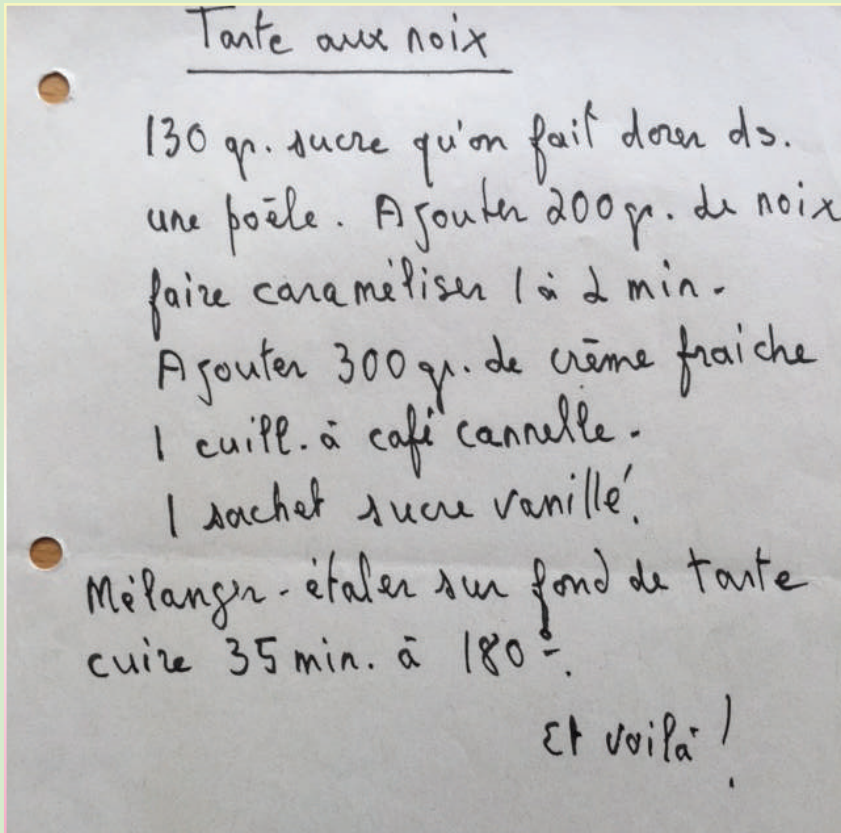 Tarte aux noix
130 gr. sucre qu'on fait dorer ds.
une poêle. Ajouter 200 gr. de noix
faire caraméliser 1 à 2 min.
Ajouter 300 gr. de crème fraiche
1 cuill. à café cannelle.
1 sachet sucre vanillé.
Mélanger - étaler sur fond de tarte
cuire 35 min. à 180°.
Et voilà !